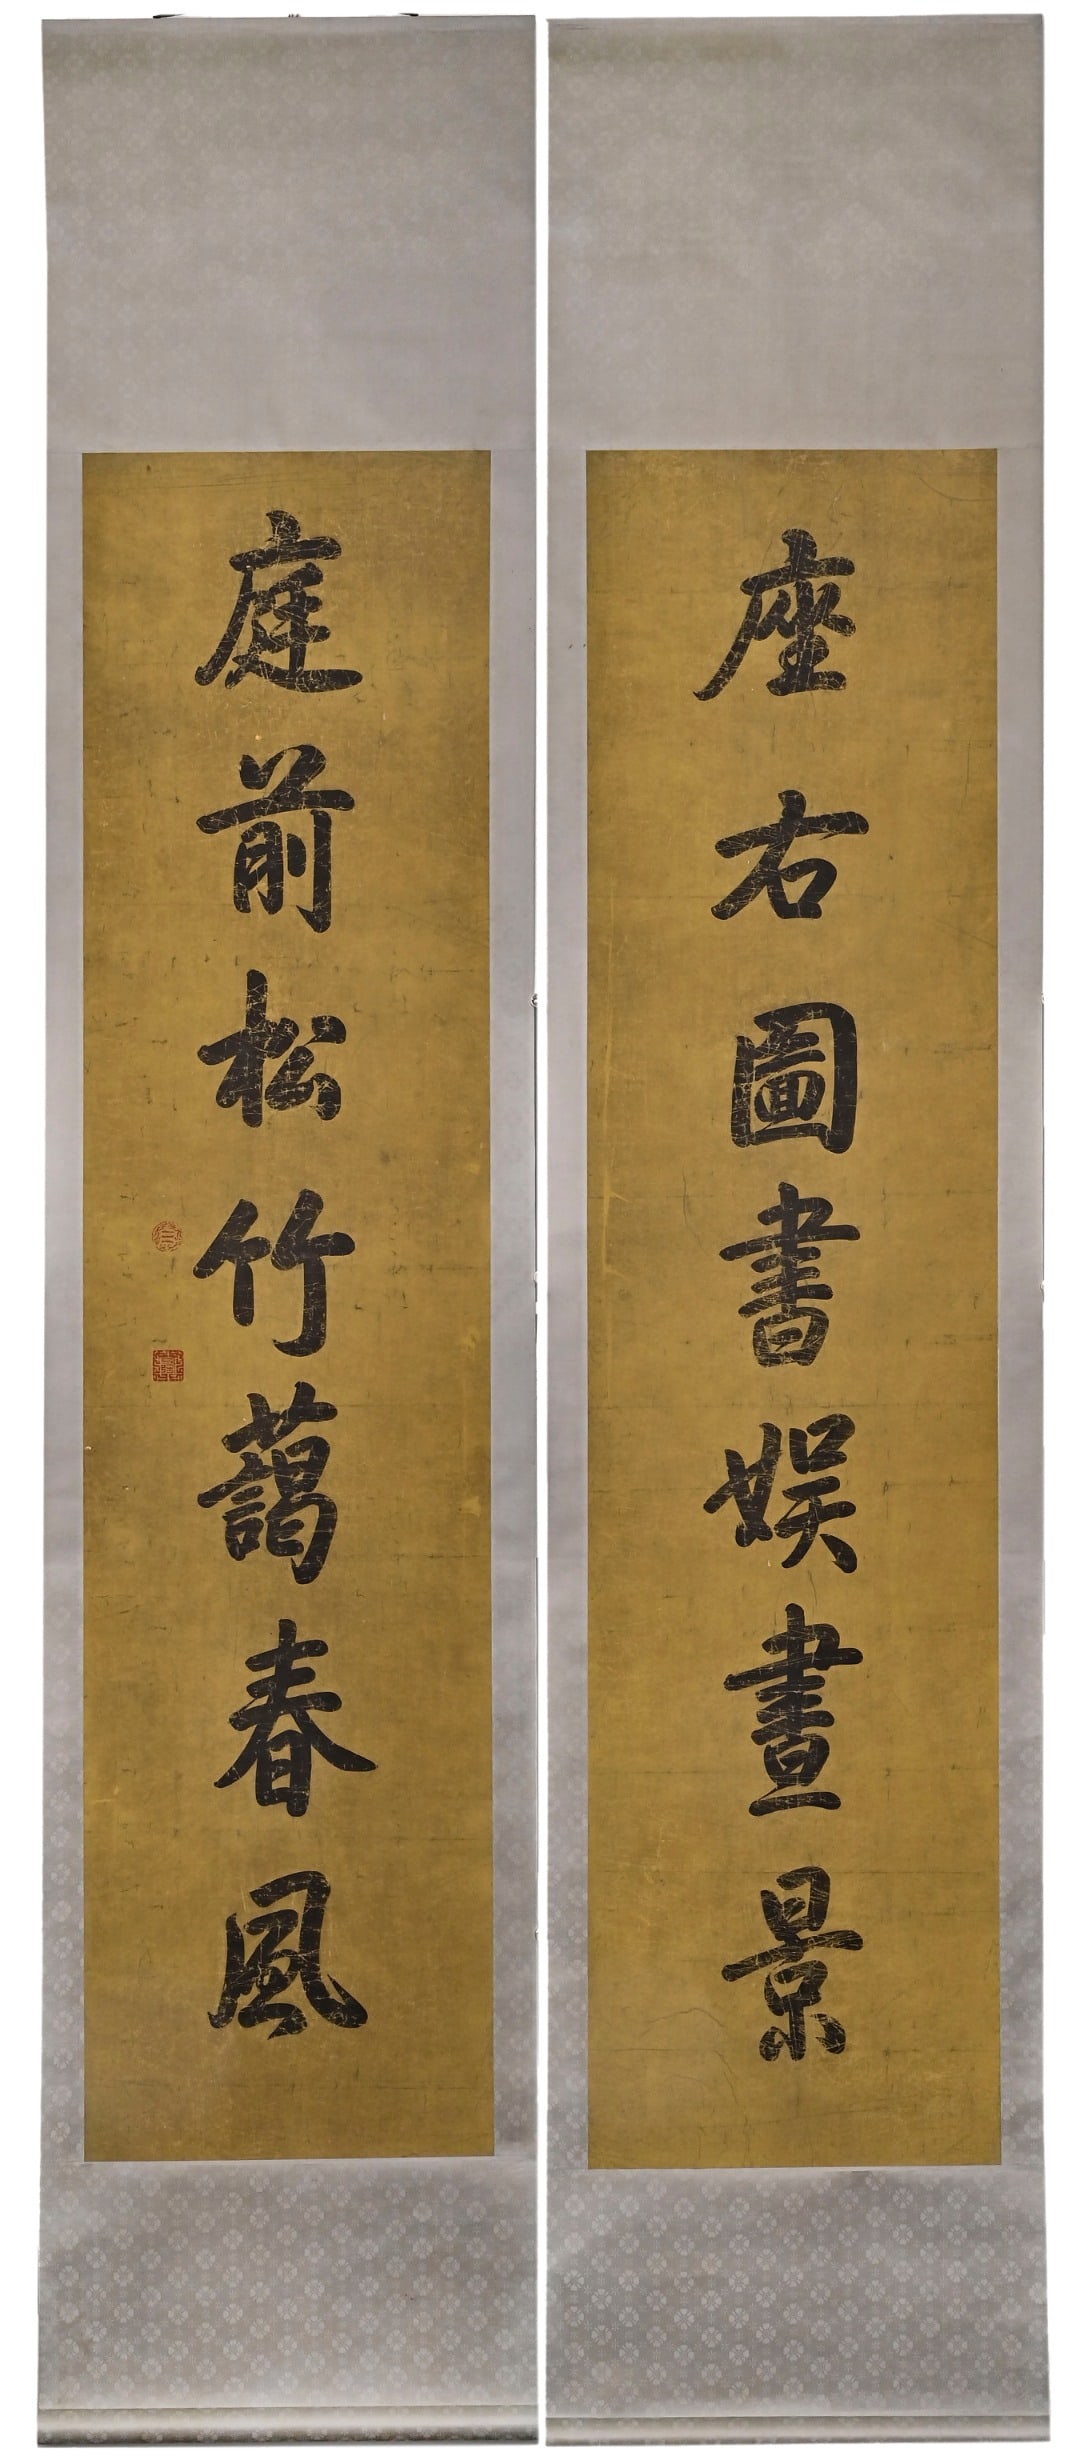 座右圖書娛晝景
庭前松竹藹春風